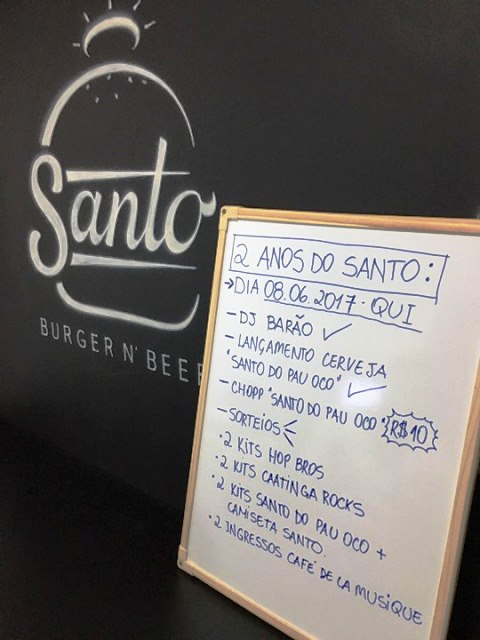 Santo
BURGER N' BEER
2 ANOS DO SANTO:
→DIA 08.06.2017 - QUI
- DJ BARÃO ✓
- LANÇAMENTO CERVEJA
"SANTO DO PAU OCO" ✓
- CHOPP "SANTO DO PAU OCO" R$10
- SORTEIOS
• 2 KITS HOP BROS
• 2 KITS CAATINGA ROCKS
• 2 KITS SANTO DO PAU OCO +
CAMISETA SANTO.
• 2 INGRESSOS CAFÉ DE LA MUSIQUE